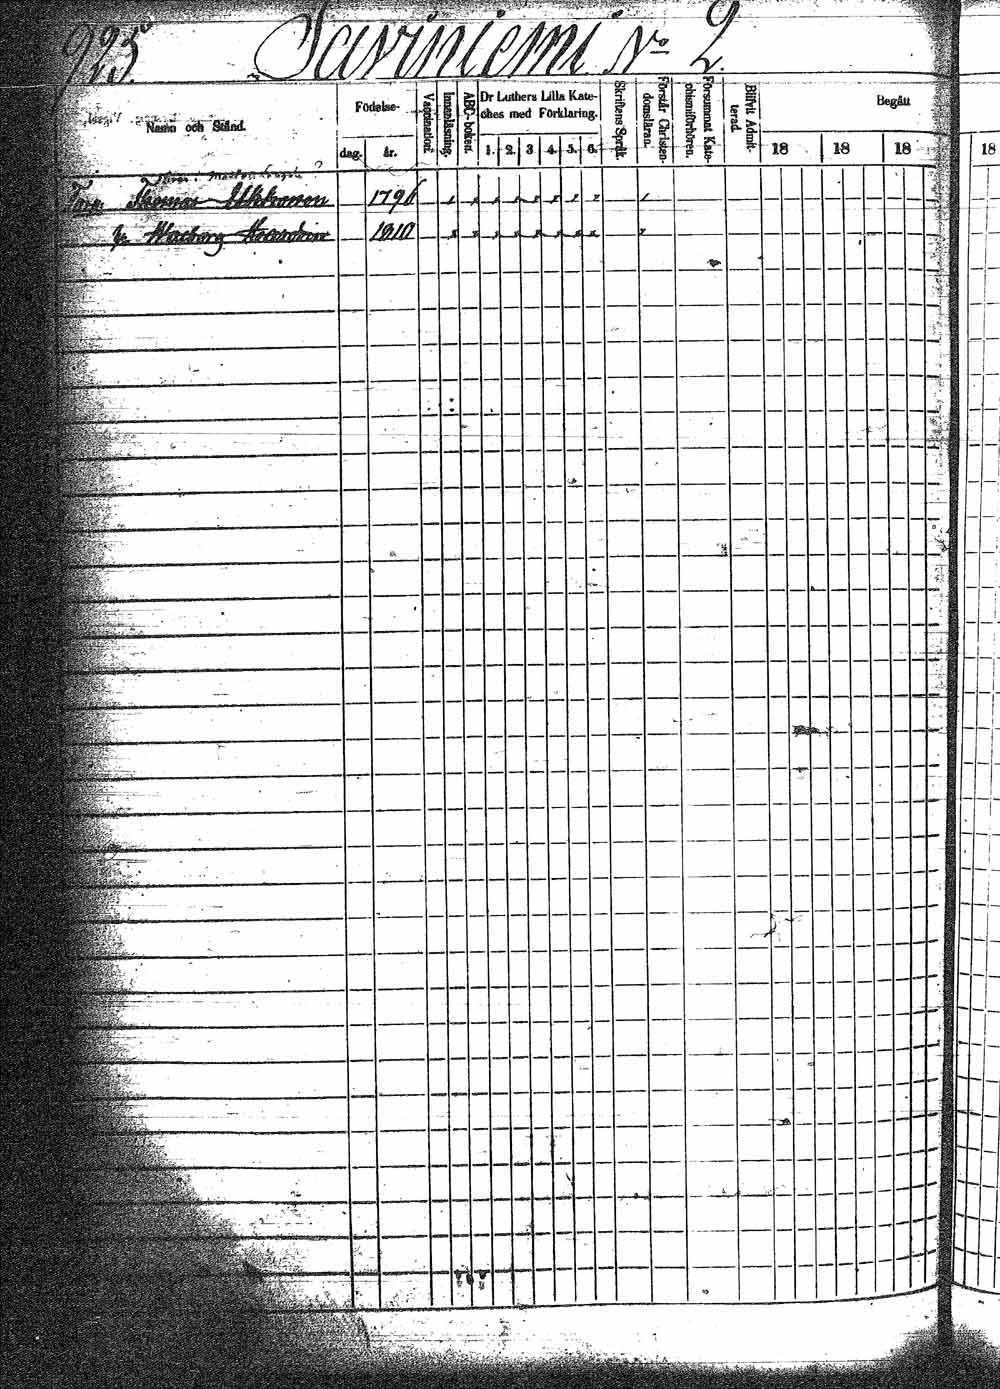 923
Saviniemi No 2.
Namn och Stånd.
Födelse-
dag.
år.
Vaccination.
Innanläsning.
ABC-boken.
Dr Luthers Lilla Kate-
ches med Förklaring.
1. 2. 3 4. 5. 6.
Skriftens Språk.
Förstår Christen-
domsläran.
Försummat Kate-
chismiförhören.
Blifvit Admit-
terad.
Begått
18 18 18 18
Thomas Ukkonen 1796
1810